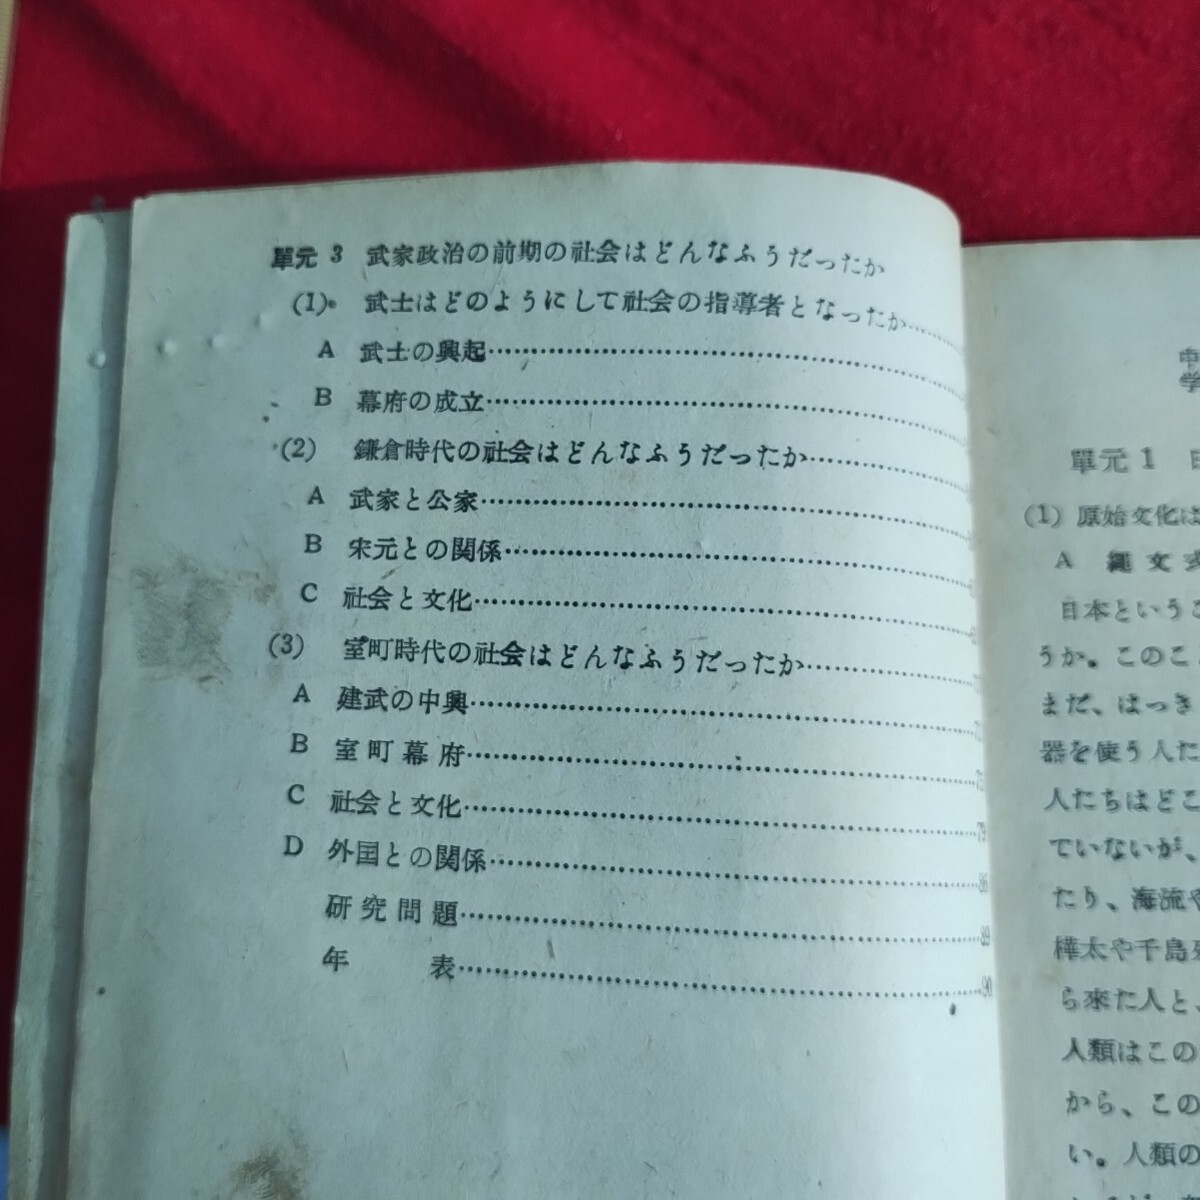 單元 3 武家政治の前期の社会はどんなふうだったか
(1) 武士はどのようにして社会の指導者となったか
A 武士の興起
B 幕府の成立
(2) 鎌倉時代の社会はどんなふうだったか
A 武家と公家
B 宋元との関係
C 社会と文化
(3) 室町時代の社会はどんなふうだったか
A 建武の中興
B 室町幕府
C 社会と文化
D 外国との関係
研究問題
年表
中
学
單元 1
(1) 原始文化は
A 縄文
日本という
うか。このこ
まだ、はっき
器を使う人た
人たちはどこ
ていないが、
たり、海流や
樺太や千島
ら來た人と、
人類はこの
から、この
い。人類の